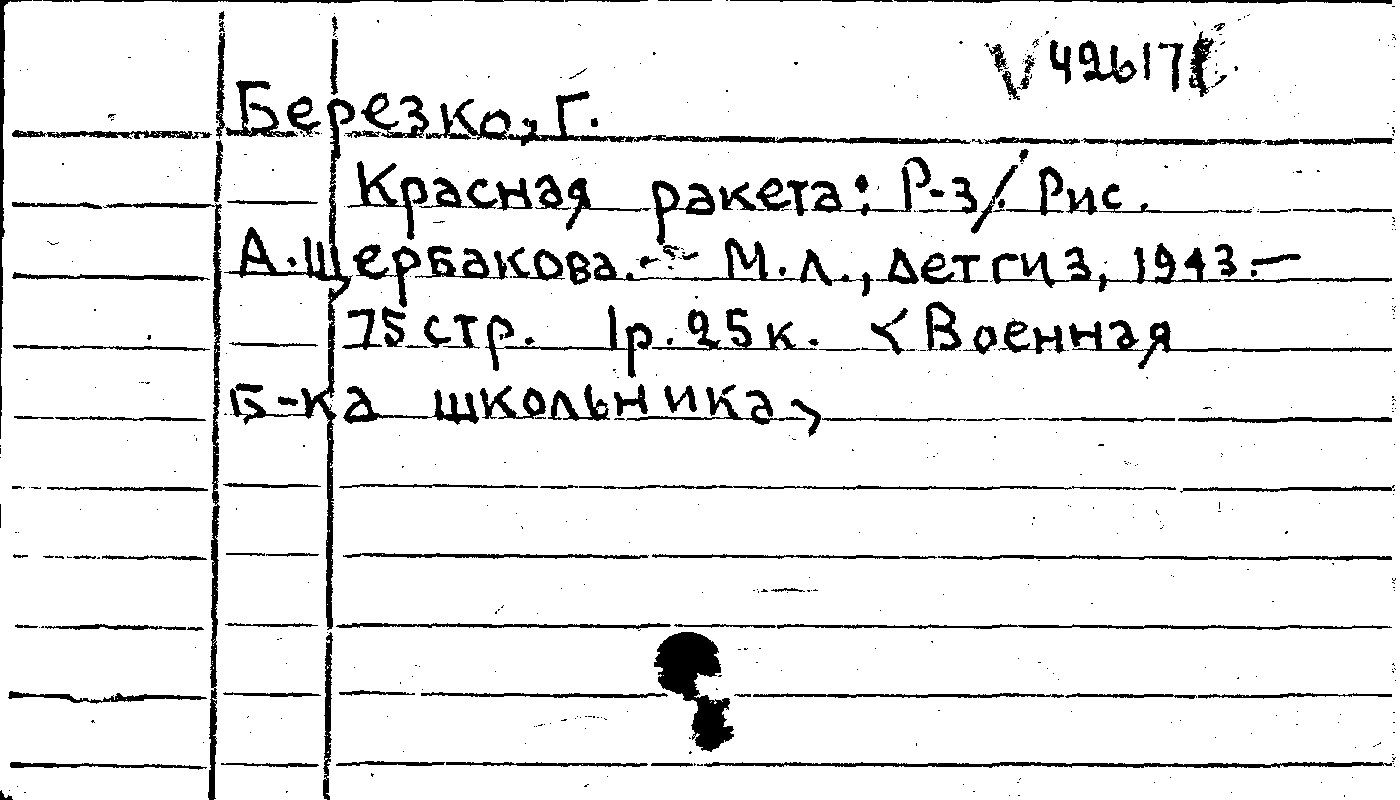 42617
Березко, Г.
Красная ракета: Р-з/. Рис.
А. Щербакова. - М.Л., Детгиз, 1943. —
75 стр. 1р. 25к. <Военная
б-ка школьника>